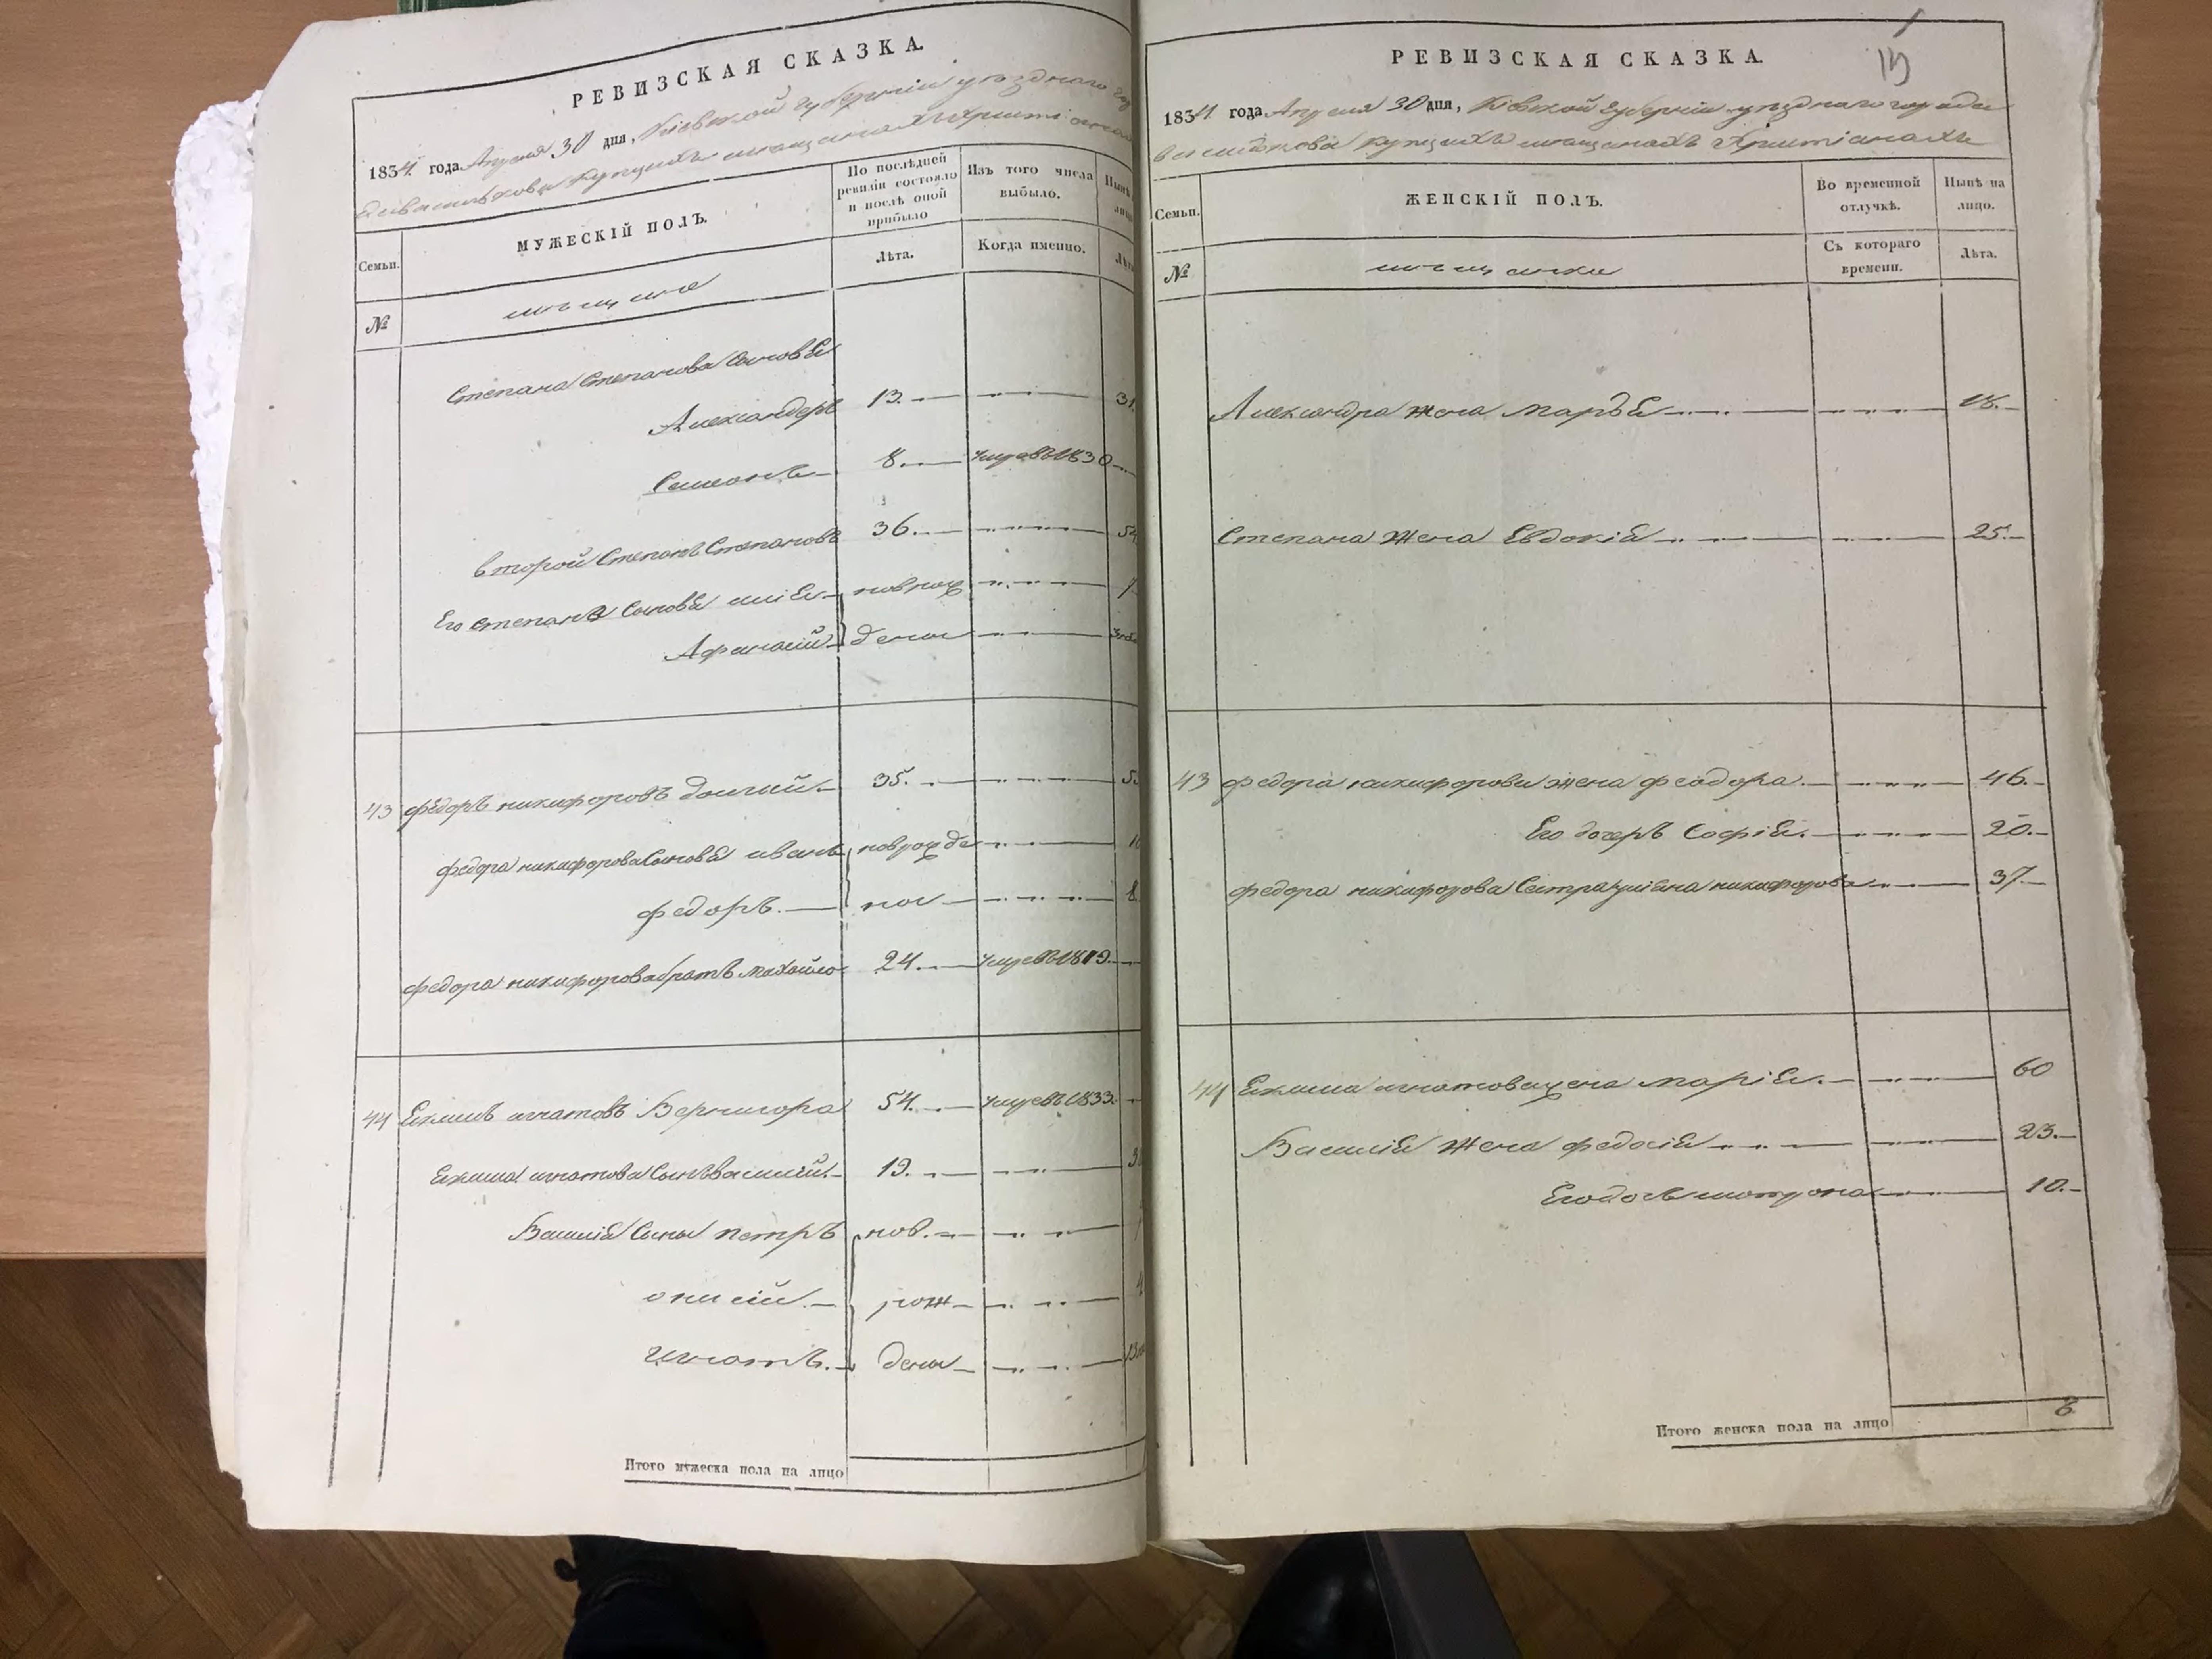 РЕВИЗСКАЯ СКАЗКА.
1834 года Апреля 30 дня, Кіевской губерніи уезднаго
Василькова купцахъ мещанахъ Христіанахъ
Семьи.
МУЖЕСКІЙ ПОЛЪ.
По послѣдней ревизіи состояло и послѣ оной прибыло
Изъ того числа выбыло.
№
мещане
Лѣта.
Когда именно.
Степана Степанова сыновья
Александеръ 13. 31
Семенъ 8. умре въ 1830
второй Степанъ Степановъ 36. 54
Его Степана сыновья новрож
Афанасій дены
43 Федоръ никифоровъ Долгий 35.
федора никифорова сыновья иванъ новрожде
федоръ. ны 8
федора никифорова братъ михайло 24. умре въ 1819.
44 Екимъ игнатовъ Вернигора 54. умре въ 1833.
Екима игнатова сынъ василий. 19.
Василія сыны петръ нов.
рож
Игнатъ. дены
Итого мужеска пола на лицо
РЕВИЗСКАЯ СКАЗКА.
1834 года Апреля 30 дня, Кіевской губерніи уезднаго города
Василькова купцахъ мещанахъ Христіанахъ
Семьи.
ЖЕНСКІЙ ПОЛЪ.
Во временной отлучкѣ.
Нынѣ на лицо.
№
мещанки
Съ котораго времени.
Лѣта.
Александра жена марья 18.
Степана жена Евдокія 25.
43 федора никифорова жена феодора 46.
Его дочеръ Софія. 20.
федора никифорова сестра никифорова 37
44 Екима игнатова жена марія. 60
Василія жена федосія 23.
Его дочь мотрона 10.
Итого женска пола на лицо 8